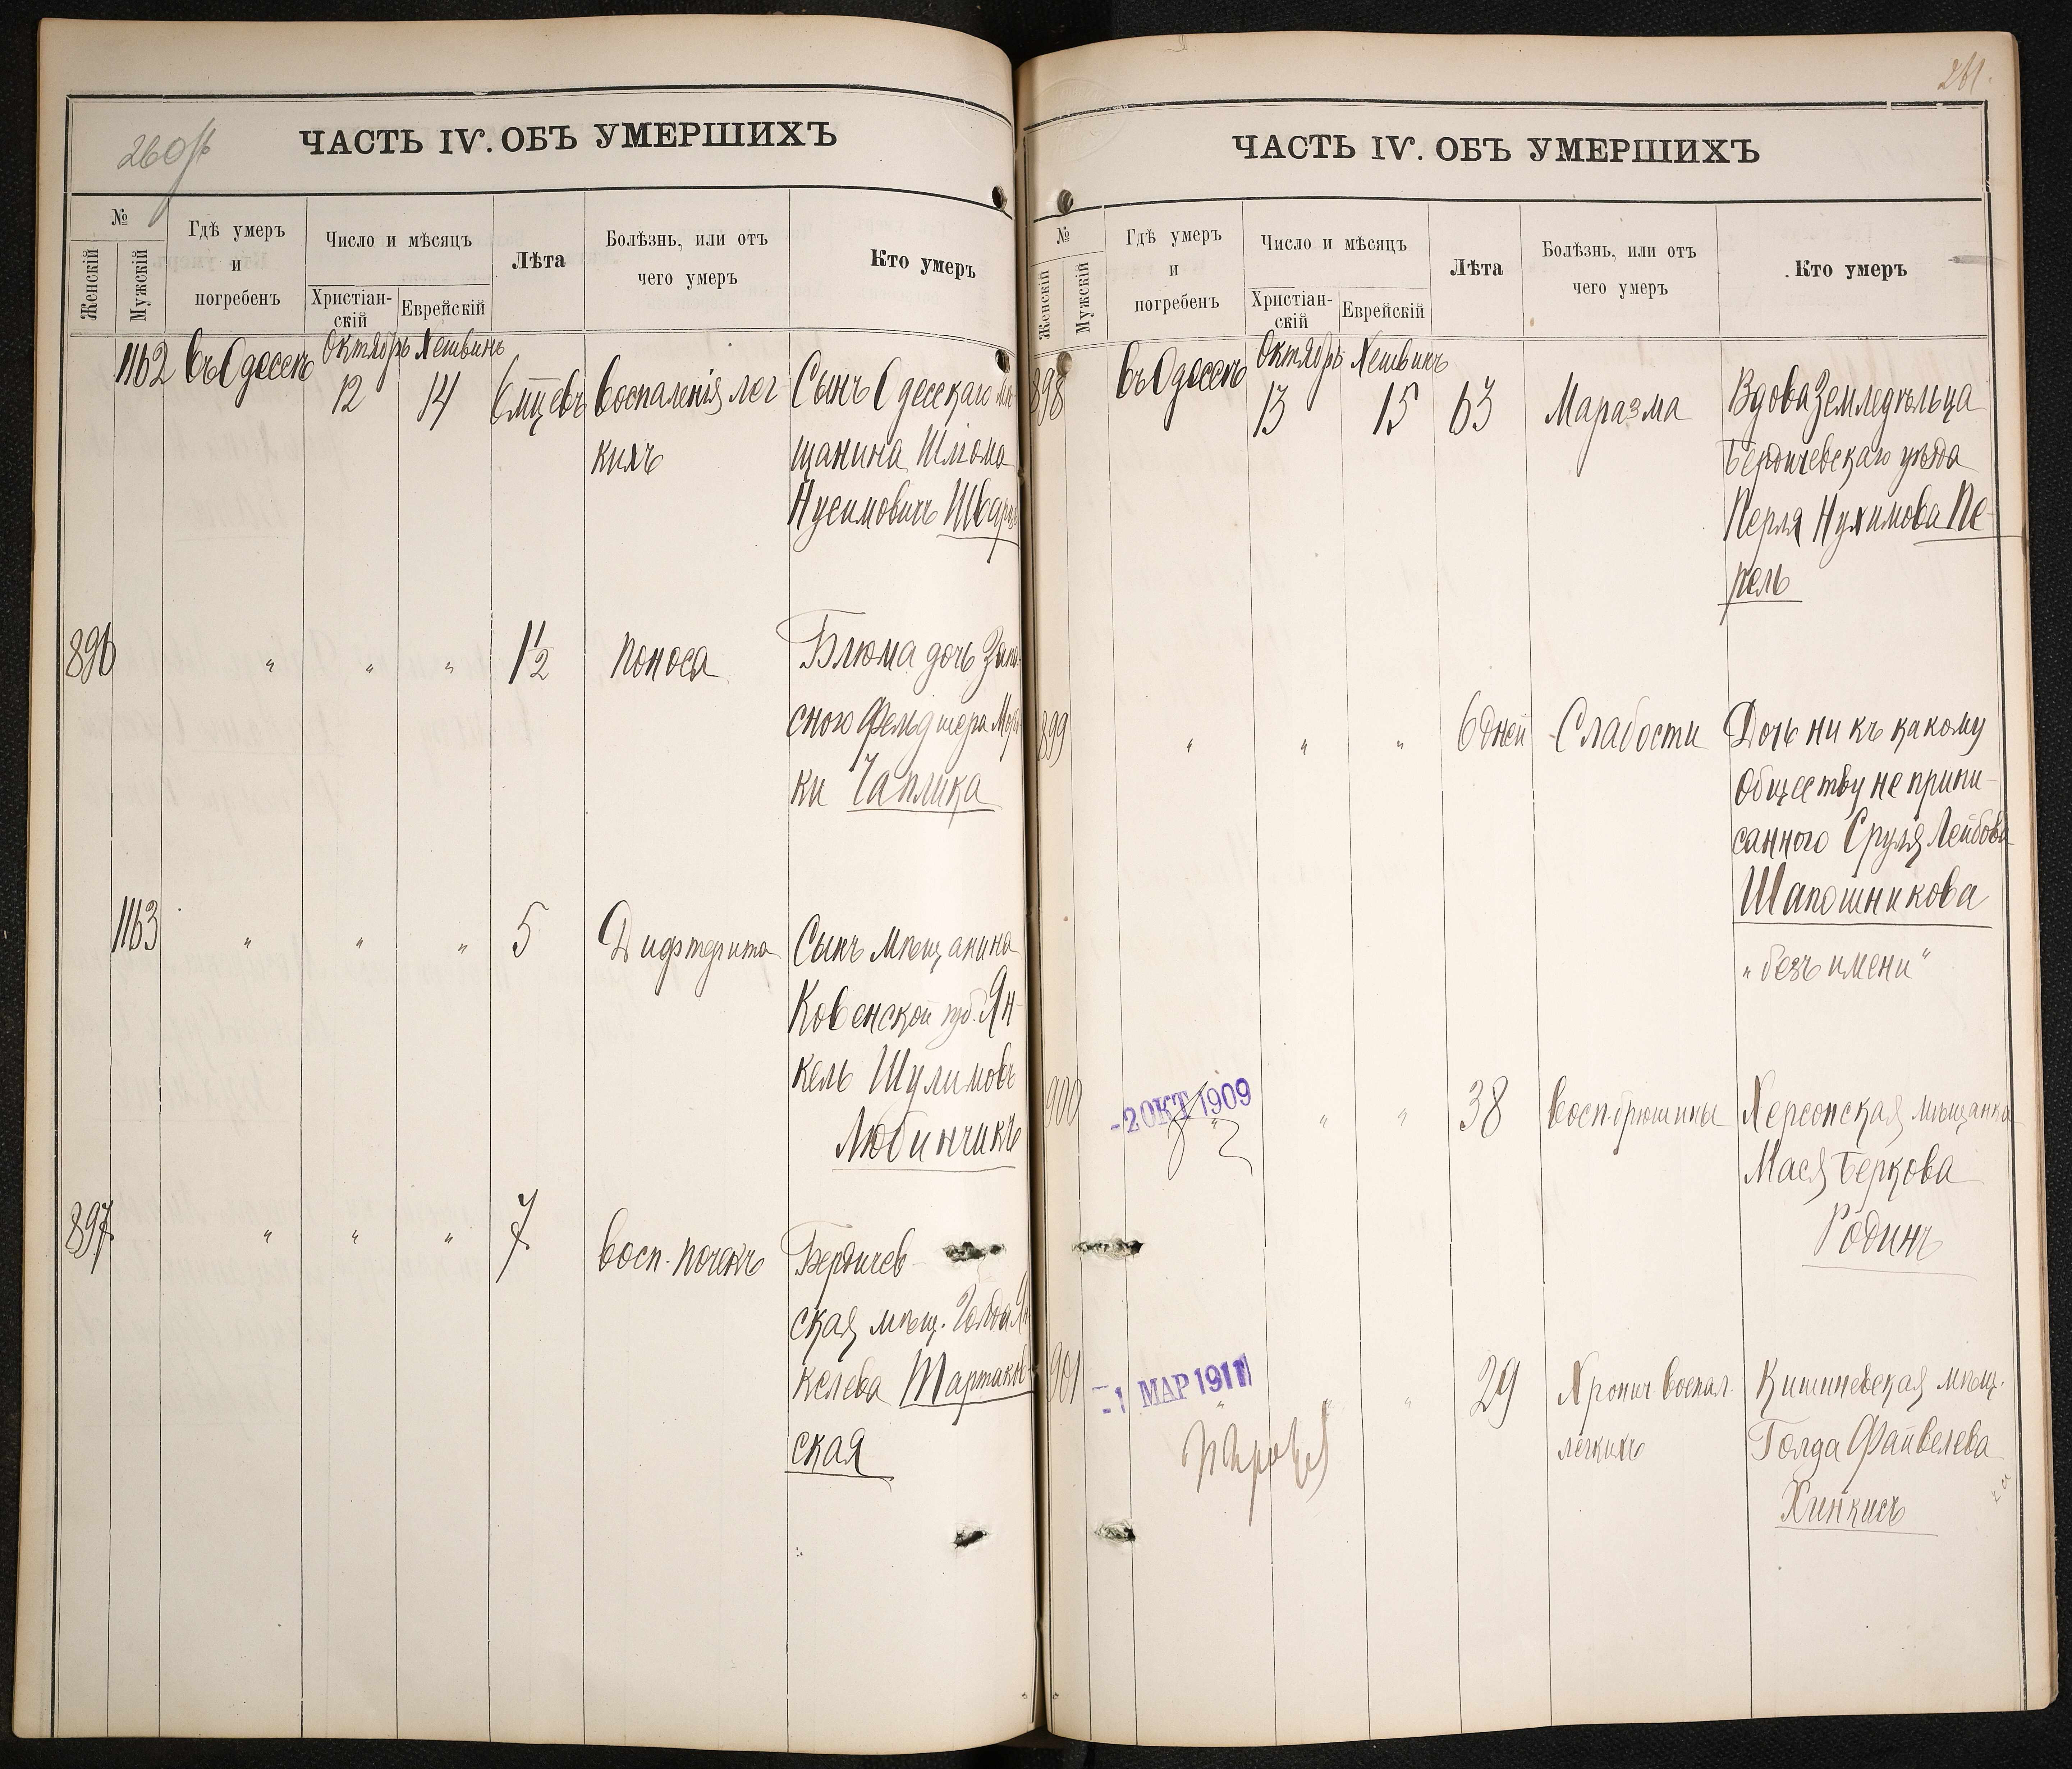 260 об
ЧАСТЬ IV. ОБЪ УМЕРШИХЪ
№
Женскій
Мужскій
Гдѣ умеръ
и
погребенъ
Число и мѣсяцъ
Христіан-
скій
Еврейскій
Лѣта
Болѣзнь, или отъ
чего умеръ
Кто умеръ
Октябрь Хешвинъ
1162 въ Одессѣ 12 14 6 мцевъ воспаленія лег
кихъ
Сынъ Одесскаго мѣ
щанина Шлома
Нусимовичъ Шварцъ
896 " " " 1 1/2 поноса
Блюма дочь Запа
сного Фельдшера Морд
ки Чаплика
1163 " " " 5 Дифтерита
Сынъ мѣщанина
Ковенской губ. Ян-
кель Шулимовъ
Любинчикъ
897 " " " 7 Восп. почекъ
Бердичев-
ская мѣщ. Голда Ян
келева Мартанов-
ская
261.
ЧАСТЬ IV. ОБЪ УМЕРШИХЪ
№
Женскій
Мужскій
Гдѣ умеръ
и
погребенъ
Число и мѣсяцъ
Христіан-
скій
Еврейскій
Лѣта
Болѣзнь, или отъ
чего умеръ
Кто умеръ
Октябрь Хешвинъ
898 въ Одессѣ 13 15 63 Маразма
Вдова Земледѣльца
Бердичевскаго уѣзда
Перля Нухимова Пе-
рель
899 " " " 6 дней Слабости
Дочь ни къ какому
Обществу не припи-
санного Сруля Лейбова
Шапошникова
„безъ имени"
900 -2 ОКТ 1909 " " " 38 Восп. брюшины
Херсонская мѣщанка
Мася Беркова
Родинъ
901 -1 МАР 1911 " " 29 Хронич. воспал.
легкихъ
Кишиневская мѣщ.
Голда Файвелева
Хинкисъ